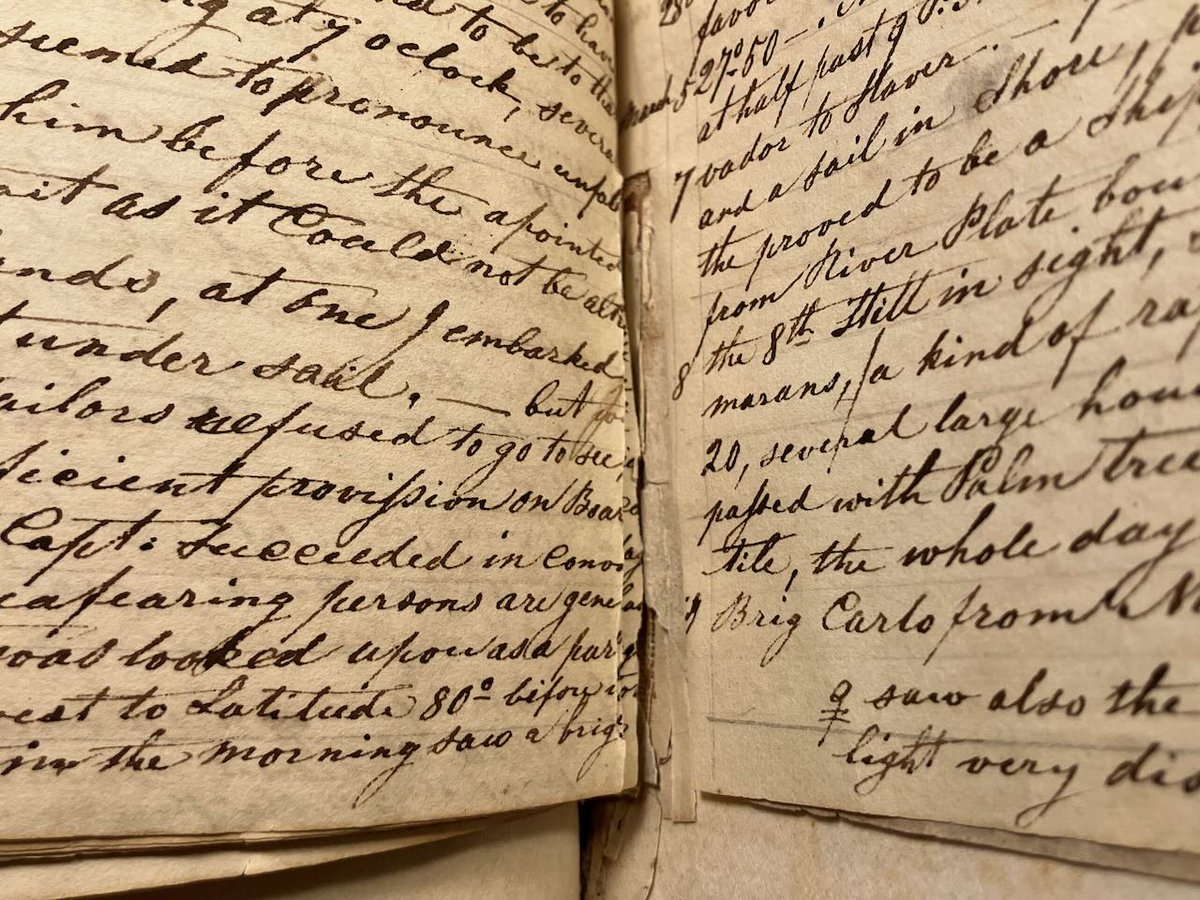 to have
to be to the
at 7 oclock, severa
seemed to pronounce unfab
him before the apointed
it as it Could not be alt
inds, at one I embarked
under sail. — but
ailors refused to go to see
ficient provission on Boar
Capt: Succeeded in conv
eafearing persons are gene
was looked upon as a par
west to Latitude 80° bifore
in the morning saw a brig
favo
March 5 27°50 —
at half past 9 P.
7 vador to Slaver. —
and a sail in Shore,
the proved to be a Ship
from River Plate bou
8 the 8th Still in sight,
marans, /a kind of ra
20, several large hou
passed with Palm tree
tile, the whole day
9 Brig Carlo from N
9 saw also the
light very dis